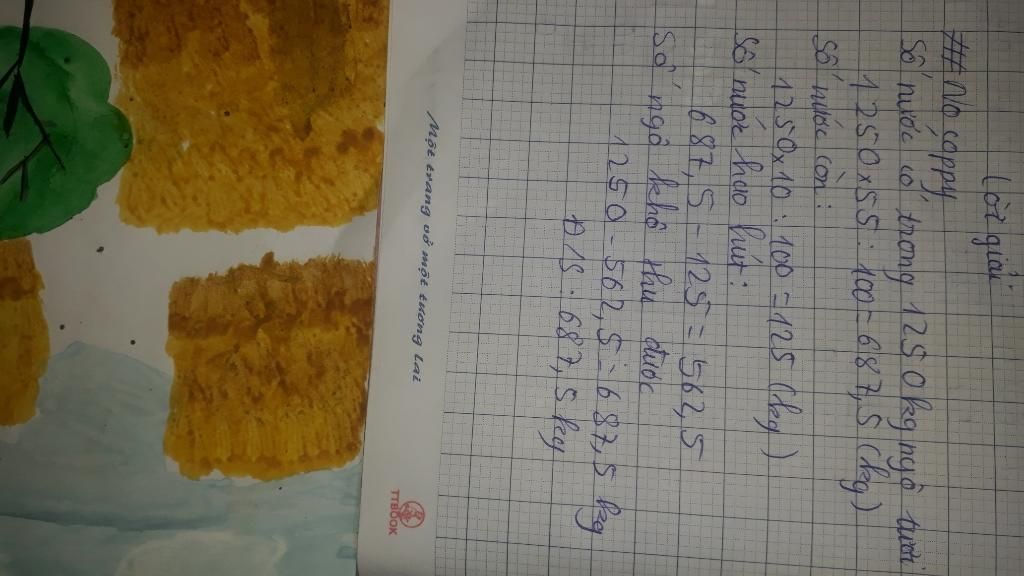 Lời giải
## No coppy
Số nước có trong 1250kg ngô tươi
1250 x 55 : 100 = 687,5 (kg)
Số nước còn:
1250 x 10 : 100 = 125 (kg)
Số nước hao hụt:
687,5 - 125 = 562,5
Số ngô khô thu được
1250 - 562,5 = 687,5 kg
Đ/S: 687,5 kg
Một trang vở một tương lai
TTBOOK